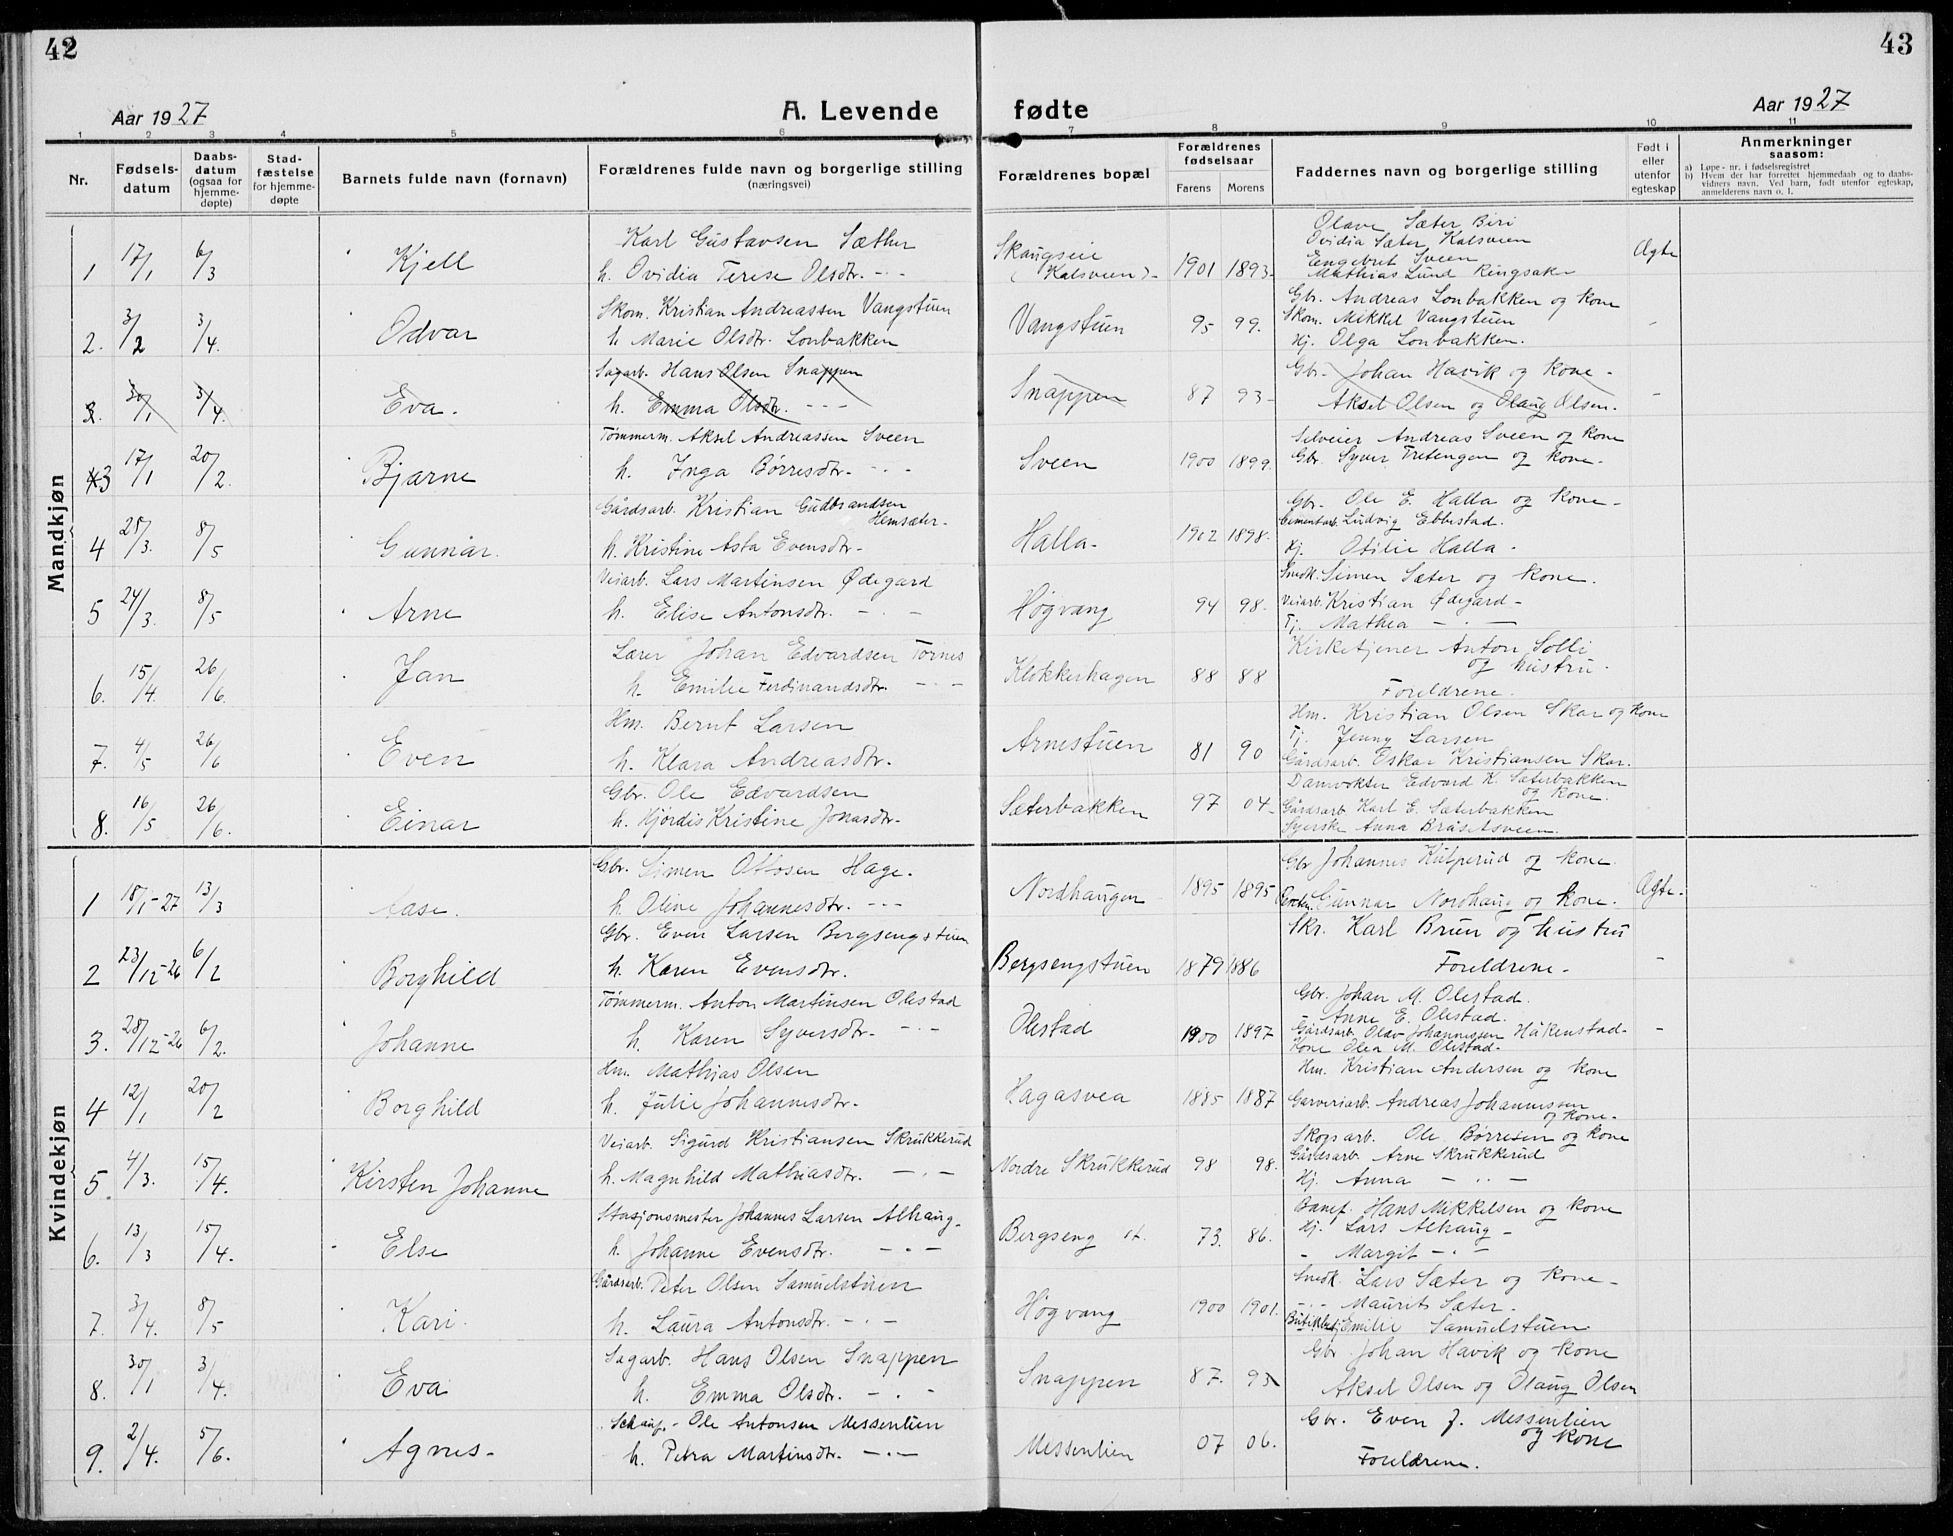 42
43
Aar 1927
A. Levende fødte
Aar 1927
1 2 3 4 5 6 7 8 9 10 11
Nr.
Fødsels-
datum
Daabs-
datum
(ogsaa for
hjemme-
døpte)
Stad-
fæstelse
for hjemme-
døpte
Barnets fulde navn (fornavn)
Forældrenes fulde navn og borgerlige stilling
(næringsvei)
Forældrenes bopæl
Forældrenes
fødselsaar
Farens Morens
Faddernes navn og borgerlige stilling
Født i
eller
utenfor
egteskap
Anmerkninger
saasom:
a) Løpe-nr. i fødselsregistret
b) Hvem der har forrettet hjemmedaab og to daabs-
vidners navn. Ved barn, født utenfor egteskap,
anmelderens navn o. l.
Mandkjøn
1 17/1 6/3 Kjell
Karl Gustavsen Sæther
h. Ovidia Terese Olsdtr. -·-
Skaugseie
(Kalsveen)- 1901 1893-
Olave Sæter Biri
Ovidia Sæter Kalsveen
Engebret Sveen
Mathias Lund Ringsaker
Ægte
2. 3/2 3/4. Odvar
Skom. Kristian Andreassen Vangstuen
h. Marie Olsdtr. Lonbakken
Vangstuen 95 99.
Gbr. Andreas Lonbakken og kone
Skom. Mikkel Vangstuen
Hj. Olga Lonbakken.
3. 30/1 3/4. Eva.
Sagarb. Hans Olsen Snappen
h. Emma Olsdtr. - - -
Snappen 87 93-
Gbr. Johan Havik og kone-
Aksel Olsen og Olaug Olsen.
3 17/1 20/2. Bjarne
Tømmerm. Aksel Andreassen Sveen
h. Inga Børresdtr. -·-
Sveen 1900 1899.
Andreas Sveen og kone
Gbr. Syver Tretengen og kone-
4 25/3. 8/5 Gunnar.
Gårdsarb. Kristian Gudbrandsen
Hemsæter-
h. Kristine Asta Evensdtr-
Halla- 1902 1898.
Gbr. Ole E. Halla og kone-
Cementarb. Ludvig Ebbestad.
Hj. Otilie Halla.
5 24/3. 8/5 Arne
Veiarb. Lars Martinsen Ødegard
h. Elise Antonsdtr. -·-
Høgvang 94 98.
Snedk. Simen Sæter og kone.
Veiarb. Kristian Ødegard-
Tj. Mathea -·-
6. 15/4. 26/6. Jan
Lærer Johan Edvardsen Tornes
h. Emilie Ferdinandsdtr. -·-
Klokkerhagen 88 88
Kirketjener Anton Solli
og hustru.
Foreldrene.
7. 4/5 26/6 Even
Hm. Bernt Larsen
h. Klara Andreasdtr.
Arnestuen 81 90
Hm. Kristian Olsen Skar og kone
Tj. Jenny Larsen
Gårdsarb. Oskar Kristiansen Skar.
8. 16/5 26/6. Einar
Gbr. Ole Edvardsen
h. Hjørdis Kristine Jonasdtr.
Sæterbakken 97 04-
Damvokter Edvard K. Sæterbakken
og kone.
Gårdsarb. Karl E. Sæterbakken
Syerske Anna Bråsetsveen.
Kvindekjøn
1 18/1-27 13/3 Aase.
Gbr. Simen Ottosen Hage.
h. Oline Johannesdtr. -·-
Nordhaugen 1895 1895
Gbr. Johannes Kulperud og kone.
Gunnar Nordhaug og kone.
Ægte.
2 23/12-26 6/2 Borghild
Gbr. Even Larsen Bergsengstuen
h. Karen Evensdtr.
Bergsengstuen 1879 1886
Skr. Karl Bruun og hustru
Foreldrene-
3. 28/12-26 6/2. Johanne
Tømmerm. Anton Martinsen Olestad
h. Karen Syversdtr. -·-
Olestad 1900 1897
Gbr. Johan M. Olestad.
- Anne E. Olestad.
Gårdsarb. Olav Johannessen Håkenstad-
Kone Olea M. Olestad-
4 12/1 20/2 Borghild
Hm. Mathias Olsen
h. Julie Johannesdtr.
Hagasvea 1885 1887
Hm. Kristian Andersen og kone
Garveriarb. Andreas Johannessen
og kone-
5. 4/3. 15/4. Kirsten Johanne
Veiarb. Sigurd Kristiansen Skrukkerud
h. Magnhild Mathiasdtr. -·-
Nordre Skrukkerud 98 98.
Skogsarb. Ole Børresen og kone
Gårdsarb. Arne Skrukkerud
Hj. Anna -··-
6. 13/3 15/4. Else
Stasjonsmester Johannes Larsen Alhaug-
h. Johanne Evensdtr. -·-
Bergseng st. 73. 86.
Banef. Hans Mikkelsen og kone
Hj. Lars Alhaug-
- Margit -·-
7. 3/4. 8/5 Kari.
Gårdsarb. Peter Olsen Samuelstuen
h. Laura Antonsdtr. -·-
Høgvang 1900 1901.
Snedk. Lars Sæter og kone-
-·- Maurits Sæter.
Emilie Samuelstuen.
8. 30/1 3/4. Eva
Sagarb. Hans Olsen Snappen
h. Emma Olsdtr. -·-
Snappen 87. 93
Gbr. Johan Havik og kone
Aksel Olsen og Olaug Olsen
9. 2/4. 5/6. Agnes-
Ole Antonsen Messenlien
h. Petra Martinsdtr. -·-
Messenlien 07 06.
Gbr. Even J. Messenlien
og kone
Foreldrene.